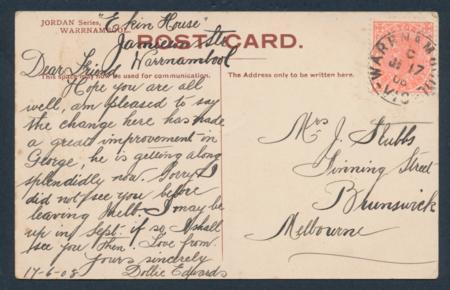 JORDAN Series,
WARRNAMBOOL.
"E kin House"
Jamieson St
Warrnambool
POST CARD.
This space may now be used for communication.
The Address only to be written here.
Dear Friend
Hope you are all
well, am pleased to say
the change here has made
a great improvement on
George, he is getting along
splendidly now. Sorry I
did not see you before
leaving Melb. I may be
up in Sept. if so I shall
see you then. Love from
Yours sincerely
17-6-08 Dollie Edwards
Mrs J. Stubbs
Street
Brunswick
Melbourne
WARRNAMBOOL
C
17
08
VIC